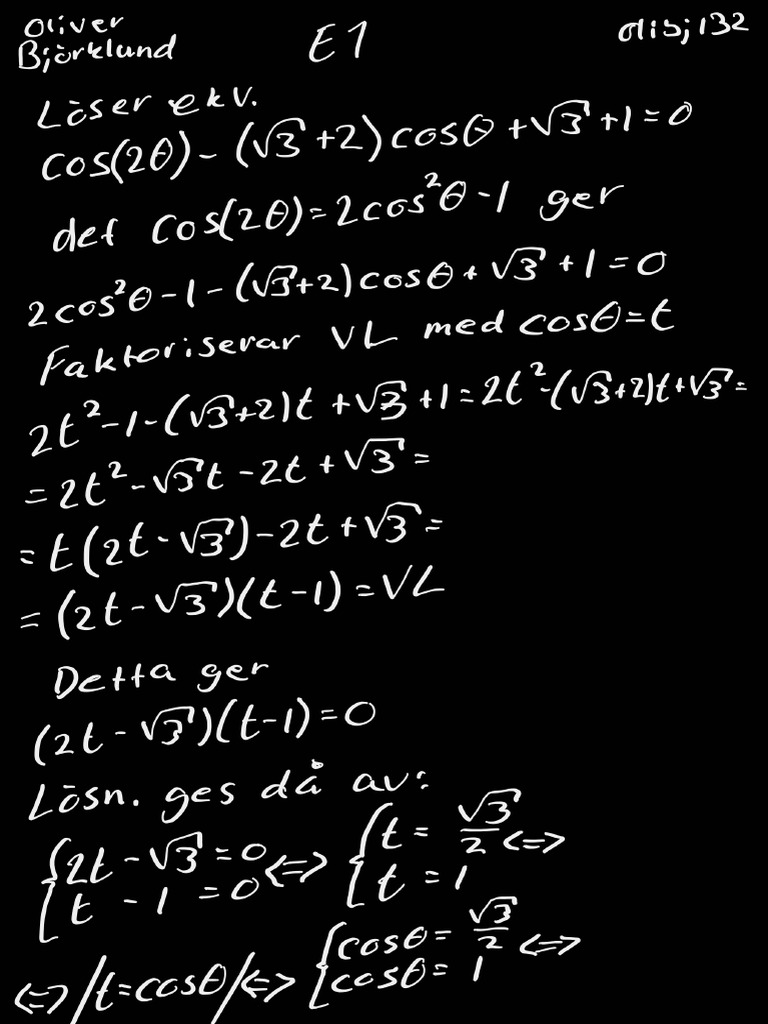 Oliver
Björklund
E1
olibj132
Löser ekv.
cos(2θ) - (√3 +2)cosθ + √3 +1 = 0
det cos(2θ) = 2cos²θ - 1 ger
2cos²θ - 1 - (√3+2)cosθ + √3 + 1 = 0
Faktoriserar VL med cosθ = t
2t² - 1 - (√3+2)t + √3 + 1 = 2t² - (√3+2)t + √3 =
= 2t² - √3t - 2t + √3 =
= t(2t - √3) - 2t + √3 =
= (2t - √3)(t - 1) = VL
Detta ger
(2t - √3)(t-1) = 0
Lösn. ges då av:
{2t - √3 = 0, t - 1 = 0 <=> {t = √3/2, t = 1 <=>
<=> /t = cosθ/ <=> {cosθ = √3/2, cosθ = 1 <=>